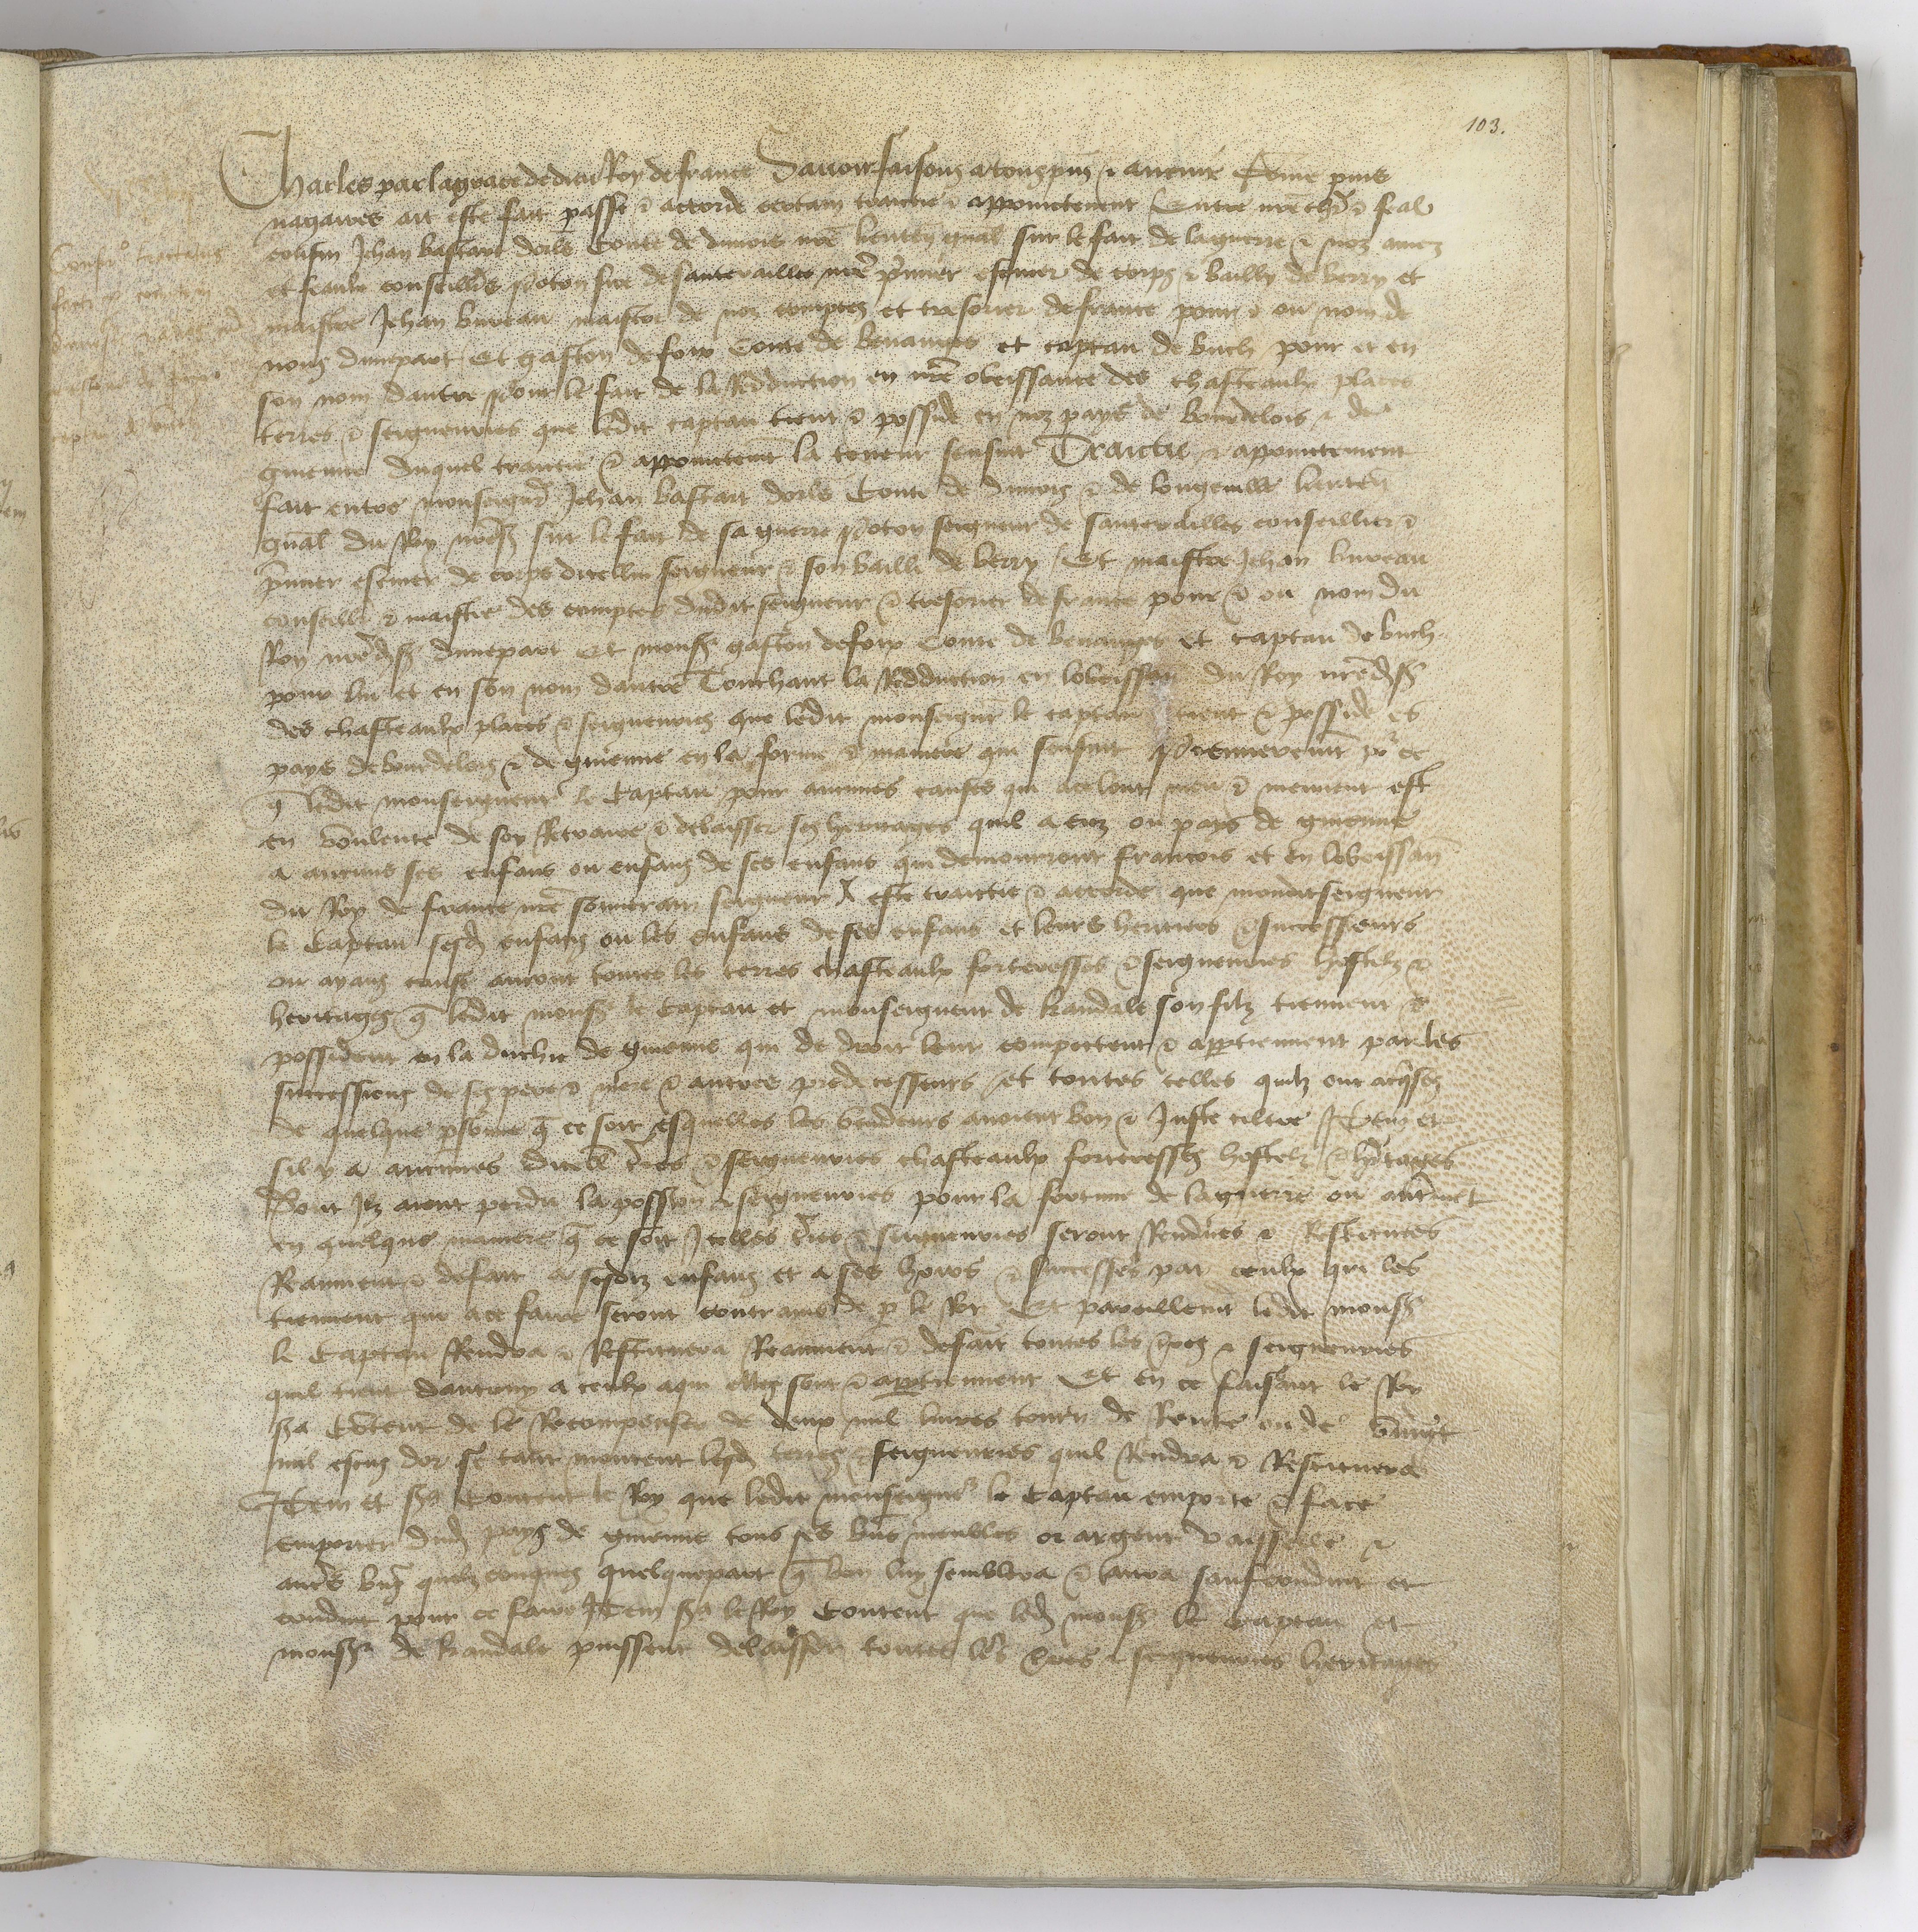 103.
Charles par la grace de dieu Roy de france Savoir faisons a tous pns & avenir Come puis
nagaires ait este fait passe & accorde certain traictie & appoinctement Entre nre chr & feal
cousin Jehan bastart dorls Conte de dunois nre lieuten gnal sur le fait de la guerre & noz amez
et feaulx conseilliers poton sire de santerailles nre pmier escuier de corps & bailly de berry et
maistre Jehan bureau maistre de noz comptes et tresorier de france pour & ou nom de
nous dunepart Et gaston de foix Conte de benauges et captau de buch pour et en
son nom dautre pour le fait de la Redduction en nre obeissance des chasteaulx places
terres & seigneuries que ledit captau tient & posside en noz pays de bourdelois & de
guienne duquel traictie & appoinctemt la teneur sensuit Traictie & appoinctement
fait entre monseignr Jehan bastart dorls Conte de dunois & de longueville lieuten
gnal du Roy nres sur le fait de sa guerre poton seigneur de santerailles conseillier &
pmier escuier de corps dicellui seigneur & son bailli de berry Et maistre Jehan bureau
conseillr & maistre des comptes dudit seigneur & tresorier de france pour & ou nom du
Roy nreds dunepart Et mons gaston de foix Conte de benauges et captau de buch
pour lui et en son nom dautre Touchant la Redduction en lobeissan du Roy nreds
des chasteaulx places & seigneuries que ledit monseignr le captau tient & posside es
pays de bourdelois & de guienne en la forme & maniere qui sensuit premierement pr ce
q ledit monseigneur le Captau pour aucunes causes qui ace lont meu & meuvent est
en voulente de soy Retraire & delaisser ses heritages quil a euz ou pays de guienne
a aucuns ses enfans ou enfans de ses enfans qui demourront francois et en lobeissan
du Roy de france nre souverain seigneur A este traictie & accorde que mondit seigneur
le Captau sesd enfans ou les enfans de ses enfans et leurs heritiers & successeurs
ou ayans cause auront toutes les terres chasteaulx forteresses & seigneuries hostelz &
heritages q ledit mons le Captau et monseigneur de kandale son filz tiennent &
possident en la duchie de guienne qui de droit leur compettent & appartiennent par les
successions de ses pere & mere & autres predecesseurs et toutes celles quilz ont acqses
de quelque psonne q ce soit esquelles les vendeurs avoient bon & Juste tiltre Item et
sil y a aucunes dicell tres & seigneuries chasteaulx forteresses hostelz & hritages
Dont Ilz aient perdu la possion & seigneuries pour la fortune de la guerre ou autremt
en quelque maniere q ce soit Icelles tres & seigneuries seront Rendues & Restituees
Reaument & defait a sesdiz enfans et a ses hoirs & successrs par ceulx qui les
tiennent qui ace faire seront contrains de p le Roy Et pareillemt ledit mons
le Captau Rendra & Restituera Reaument & defait toutes les tres & seigneuries
quil tient dautruy a ceulx aqui elles sont & appartiennent Et en ce faisant le Roy
sa Content de le Recompenser de deux mil livres tourn de Rente ou de vint
mil escuz dor se tant montent lesd terres & seigneuries quil Rendra & Restituera
Item et sa Content le Roy que ledit monseignr le Captau emporte & face
emporter dud pays de guienne tous ses biens meubles or argent vaisselle &
autrs biens quelzconques quelquepart q bon luy semblera & aura saufconduit et
conduit pour ce faire Item sa le Roy Content que led mons le Captau et
monsr de kandale puissent delaisser toutes les tres & seigneuries heritages